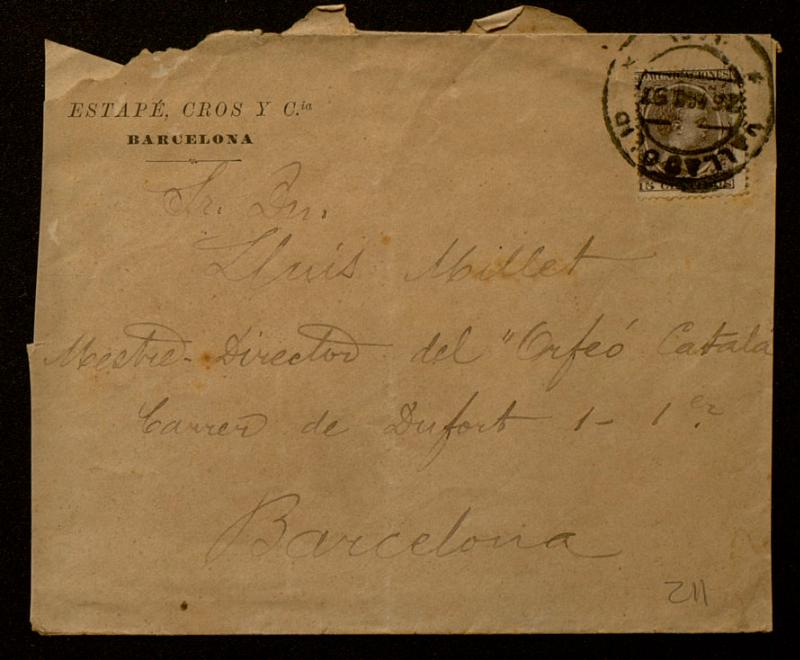 ESTAPÉ, CROS Y C.ia
BARCELONA
VALLADOLID
15 CENTIMOS
Sr. Dn.
Lluis Millet
Mestre-Director del "Orfeó Catalá
Carrer de Dufort 1-1er
Barcelona
211